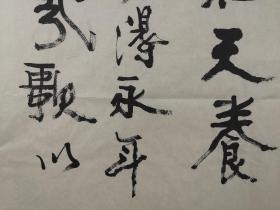 天養
得永年
歌以